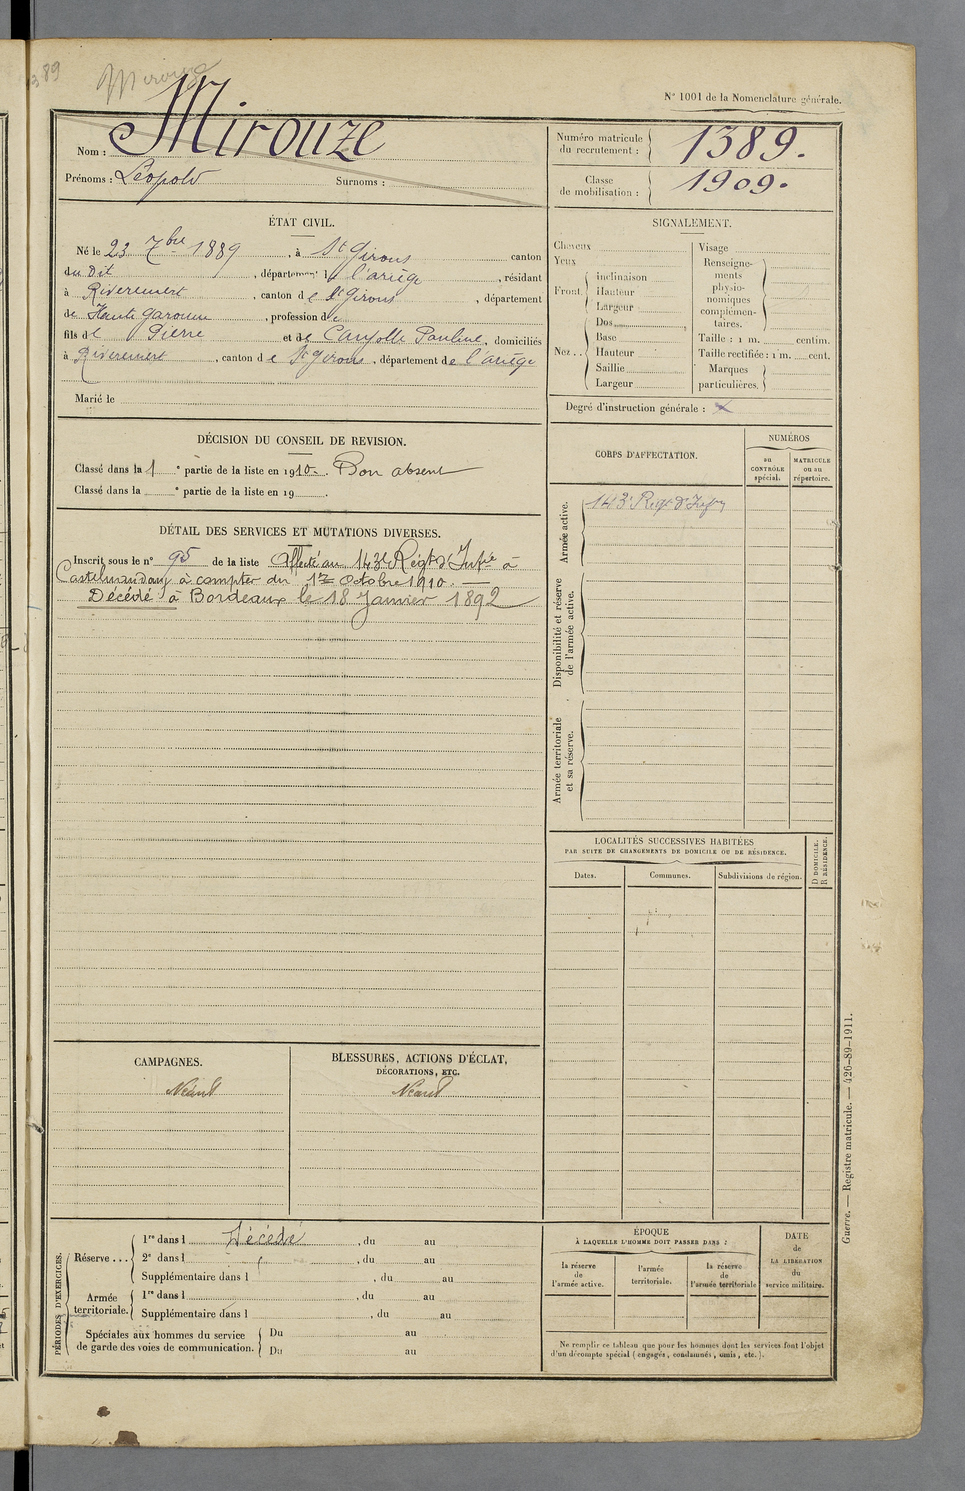 389
Mirouze
N° 1001 de la Nomenclature générale.
Nom : Mirouze
Prénoms : Léopold Surnoms :
Numéro matricule du recrutement : 1389.
Classe de mobilisation : 1909.
ÉTAT CIVIL.
Né le 23 7bre 1889, à St Girons canton
du Dit, département de l'ariège, résidant
à Riverenert, canton de St Girons, département
de Haute Garonne, profession de
fils de Pierre et de Caujolle Pauline, domiciliés
à Riverenert, canton de St Girons, département de l'ariège
Marié le
SIGNALEMENT.
Cheveux
Yeux
Front. inclinaison
Hauteur
Largeur
Nez.. Dos
Base
Hauteur
Saillie
Largeur
Visage
Renseigne-
ments
physio-
nomiques
complémen-
taires.
Taille : 1 m. centim.
Taille rectifiée : 1 m. cent.
Marques
particulières.
Degré d'instruction générale : x
DÉCISION DU CONSEIL DE REVISION.
Classé dans la 1e partie de la liste en 1910. Bon absent
Classé dans la e partie de la liste en 19 .
DÉTAIL DES SERVICES ET MUTATIONS DIVERSES.
Inscrit sous le n° 95 de la liste Affecté au 143e Régt d'Infie à
Castelnaudary à compter du 1er Octobre 1910.
Décédé à Bordeaux le 18 Janvier 1892
CORPS D'AFFECTATION.
NUMÉROS
au
CONTRÔLE
spécial.
MATRICULE
ou au
répertoire.
Armée active.
143e Régt d'Infie
Disponibilité et réserve
de l'armée active.
Armée territoriale
et sa réserve.
LOCALITÉS SUCCESSIVES HABITÉES
PAR SUITE DE CHANGEMENTS DE DOMICILE OU DE RÉSIDENCE.
Dates. Communes. Subdivisions de région.
D DOMICILE.
R RÉSIDENCE.
CAMPAGNES.
Néant
BLESSURES, ACTIONS D'ÉCLAT,
DÉCORATIONS, ETC.
Néant
PÉRIODES D'EXERCICES.
Réserve... 1re dans l Décédé, du au
2e dans l , du au
Supplémentaire dans l , du au
Armée
territoriale. 1re dans l , du au
Supplémentaire dans l , du au
Spéciales aux hommes du service
de garde des voies de communication. Du au
Du au
ÉPOQUE
À LAQUELLE L'HOMME DOIT PASSER DANS :
la réserve
de
l'armée active.
l'armée
territoriale.
la réserve
de
l'armée territoriale
DATE
de
LA LIBÉRATION
du
service militaire.
Ne remplir ce tableau que pour les hommes dont les services font l'objet
d'un décompte spécial (engagés, condamnés, omis, etc.).
Guerre. — Registre matricule. — 426-89-1911.